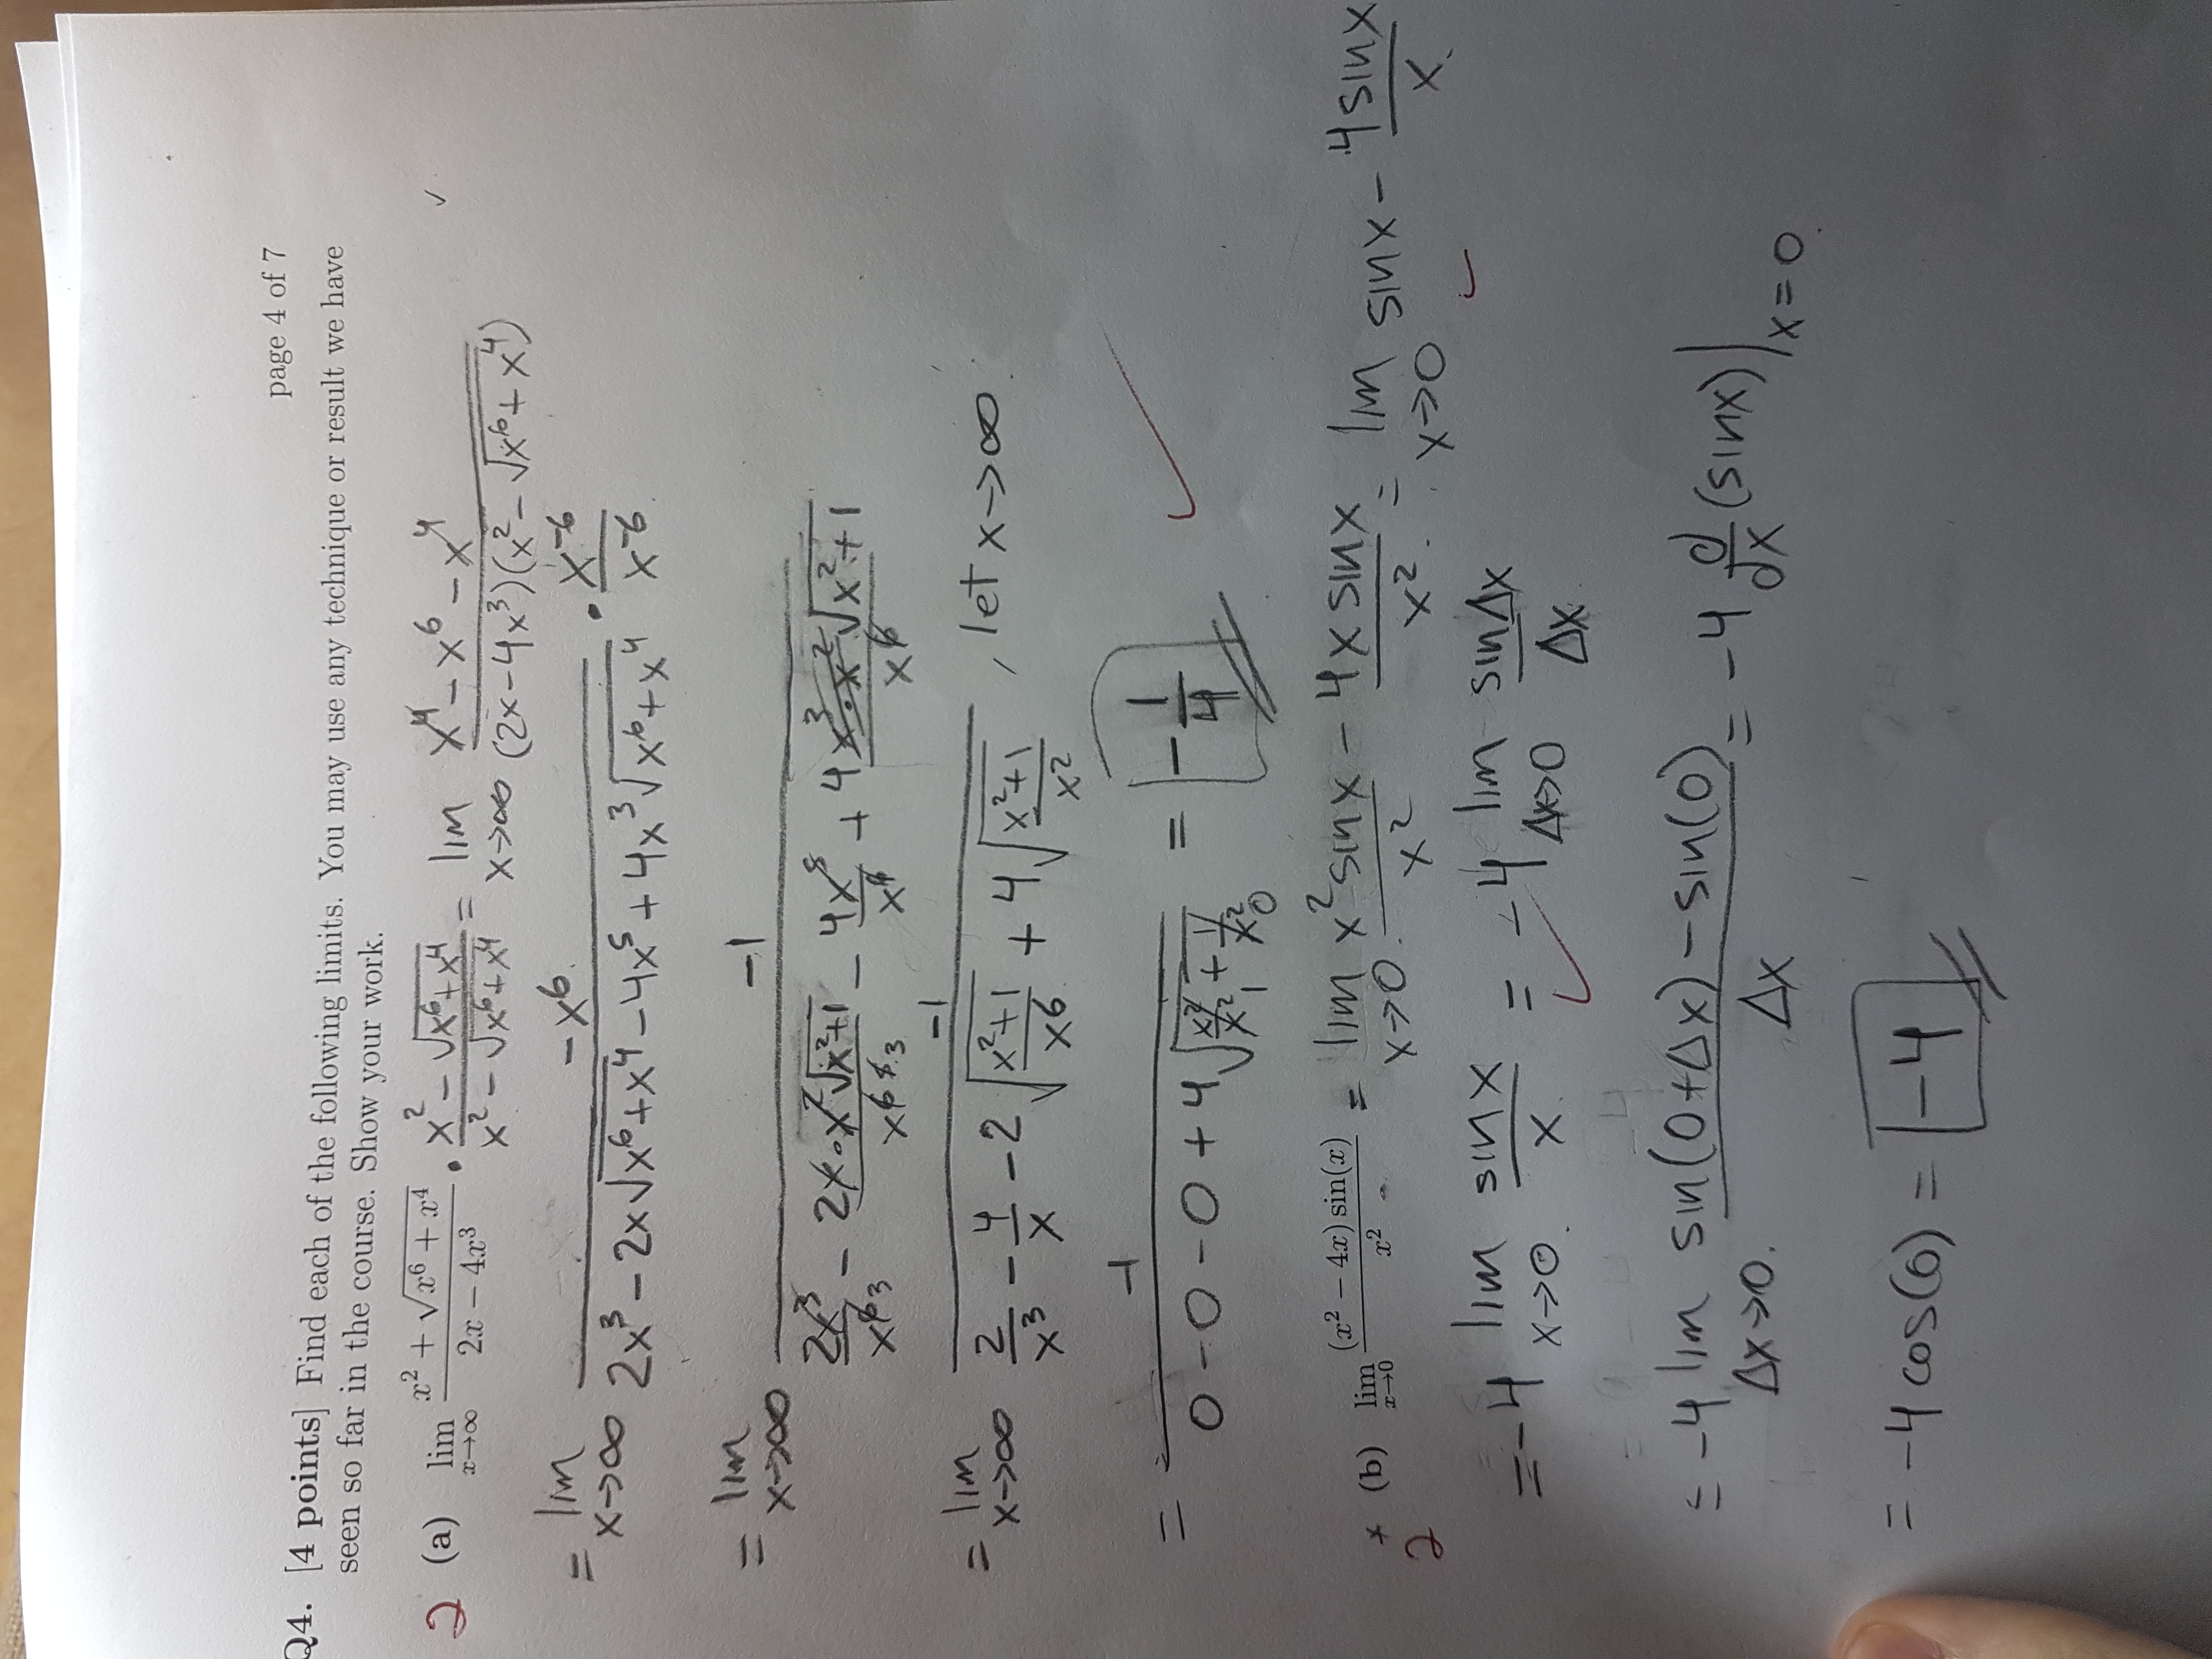 page 4 of 7
Q4. [4 points] Find each of the following limits. You may use any technique or result we have
seen so far in the course. Show your work.
2 (a) lim_{x→∞} (x² + √(x⁶ + x⁴))/(2x − 4x³) · (x² − √(x⁶+x⁴))/(x² − √(x⁶+x⁴)) = lim_{x→∞} (x⁴ − x⁶ − x⁴)/((2x−4x³)(x² − √(x⁶+x⁴))) ✓
= lim_{x→∞} −x⁶/(2x³ − 2x√(x⁶+x⁴) − 4x⁵ + 4x³√(x⁶+x⁴)) · x⁻⁶/x⁻⁶
= lim_{x→∞} −1/(2x³/x⁶ − 2x·x²√(x²+1)/x⁶ − 4x⁵/x⁶ + 4x³·x²√(x²+1)/x⁶)
= lim_{x→∞} −1/(2/x³ − 4/x − 2√((x²+1)/x⁶) + 4√((x²+1)/x²)) , let x→∞
= −1/(0 − 0 − 0 + 4√(x²/x² + 1/x²)) = −1/4 ✓
2 (b) lim_{x→0} (x² − 4x) sin(x)/x² = lim_{x→0} x² sin x/x² − 4x sin x/x² = lim_{x→0} sin x − 4 sin x/x
= −4 lim_{x→0} sin x/x = −4 lim_{Δx→0} sin Δx/Δx ✓
= −4 lim_{Δx→0} (sin(0+Δx) − sin(0))/Δx = −4 d/dx (sin x)|_{x=0}
= −4 cos(0) = −4